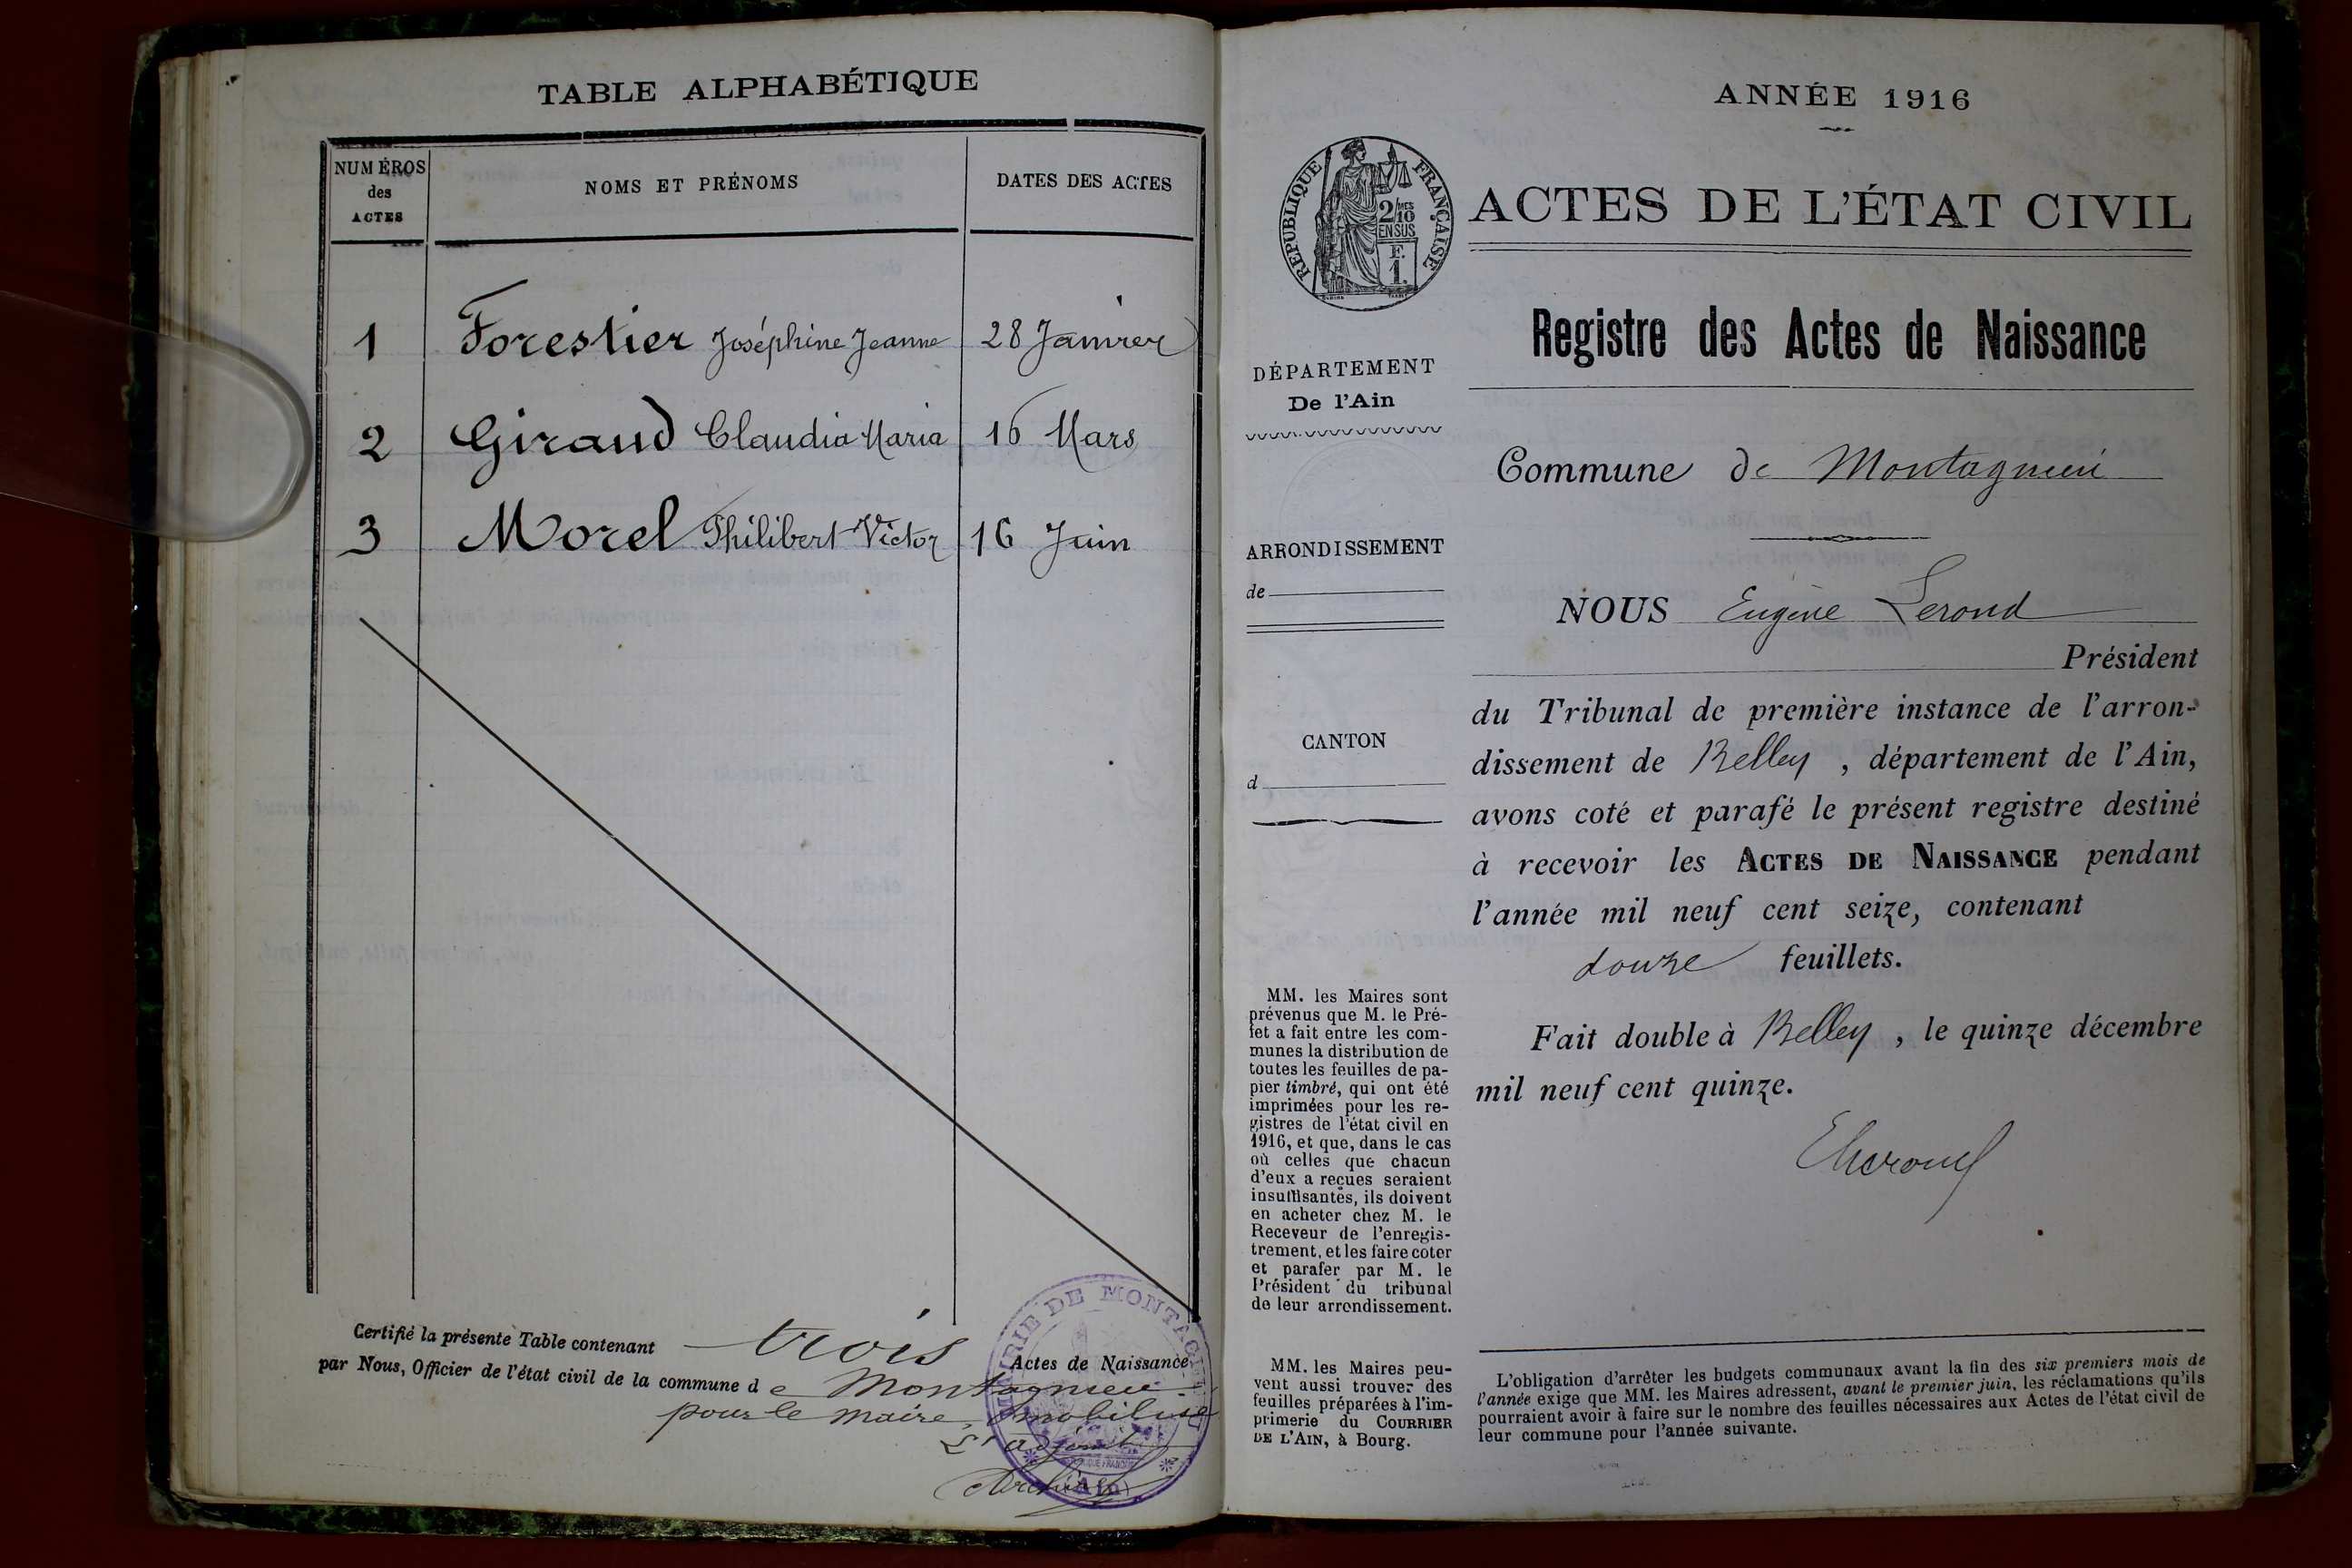 TABLE ALPHABÉTIQUE
NUMÉROS
des
ACTES
NOMS ET PRÉNOMS
DATES DES ACTES
1 Forestier Joséphine Jeanne 28 Janvier
2 Giraud Claudia Maria 16 Mars
3 Morel Philibert Victor 16 Juin
Certifié la présente Table contenant trois Actes de Naissance
par Nous, Officier de l'état civil de la commune de Montagnieu
pour le maire, mobilisé
L'adjoint
MAIRIE DE MONTAGNIEU
(Ain)
ANNÉE 1916
RÉPUBLIQUE FRANÇAISE
2/10 MES
EN SUS
F.
1.
ACTES DE L'ÉTAT CIVIL
Registre des Actes de Naissance
DÉPARTEMENT
De l'Ain
ARRONDISSEMENT
de
CANTON
d
MM. les Maires sont
prévenus que M. le Pré-
fet a fait entre les com-
munes la distribution de
toutes les feuilles de pa-
pier timbré, qui ont été
imprimées pour les re-
gistres de l'état civil en
1916, et que, dans le cas
où celles que chacun
d'eux a reçues seraient
insuffisantes, ils doivent
en acheter chez M. le
Receveur de l'enregis-
trement, et les faire coter
et parafer par M. le
Président du tribunal
de leur arrondissement.
MM. les Maires peu-
vent aussi trouver des
feuilles préparées à l'im-
primerie du COURRIER
DE L'AIN, à Bourg.
Commune de Montagnieu
NOUS Eugène Lerond
Président
du Tribunal de première instance de l'arron-
dissement de Belley, département de l'Ain,
avons coté et parafé le présent registre destiné
à recevoir les ACTES DE NAISSANCE pendant
l'année mil neuf cent seize, contenant
douze feuillets.
Fait double à Belley, le quinze décembre
mil neuf cent quinze.
L'obligation d'arrêter les budgets communaux avant la fin des six premiers mois de
l'année exige que MM. les Maires adressent, avant le premier juin, les réclamations qu'ils
pourraient avoir à faire sur le nombre des feuilles nécessaires aux Actes de l'état civil de
leur commune pour l'année suivante.